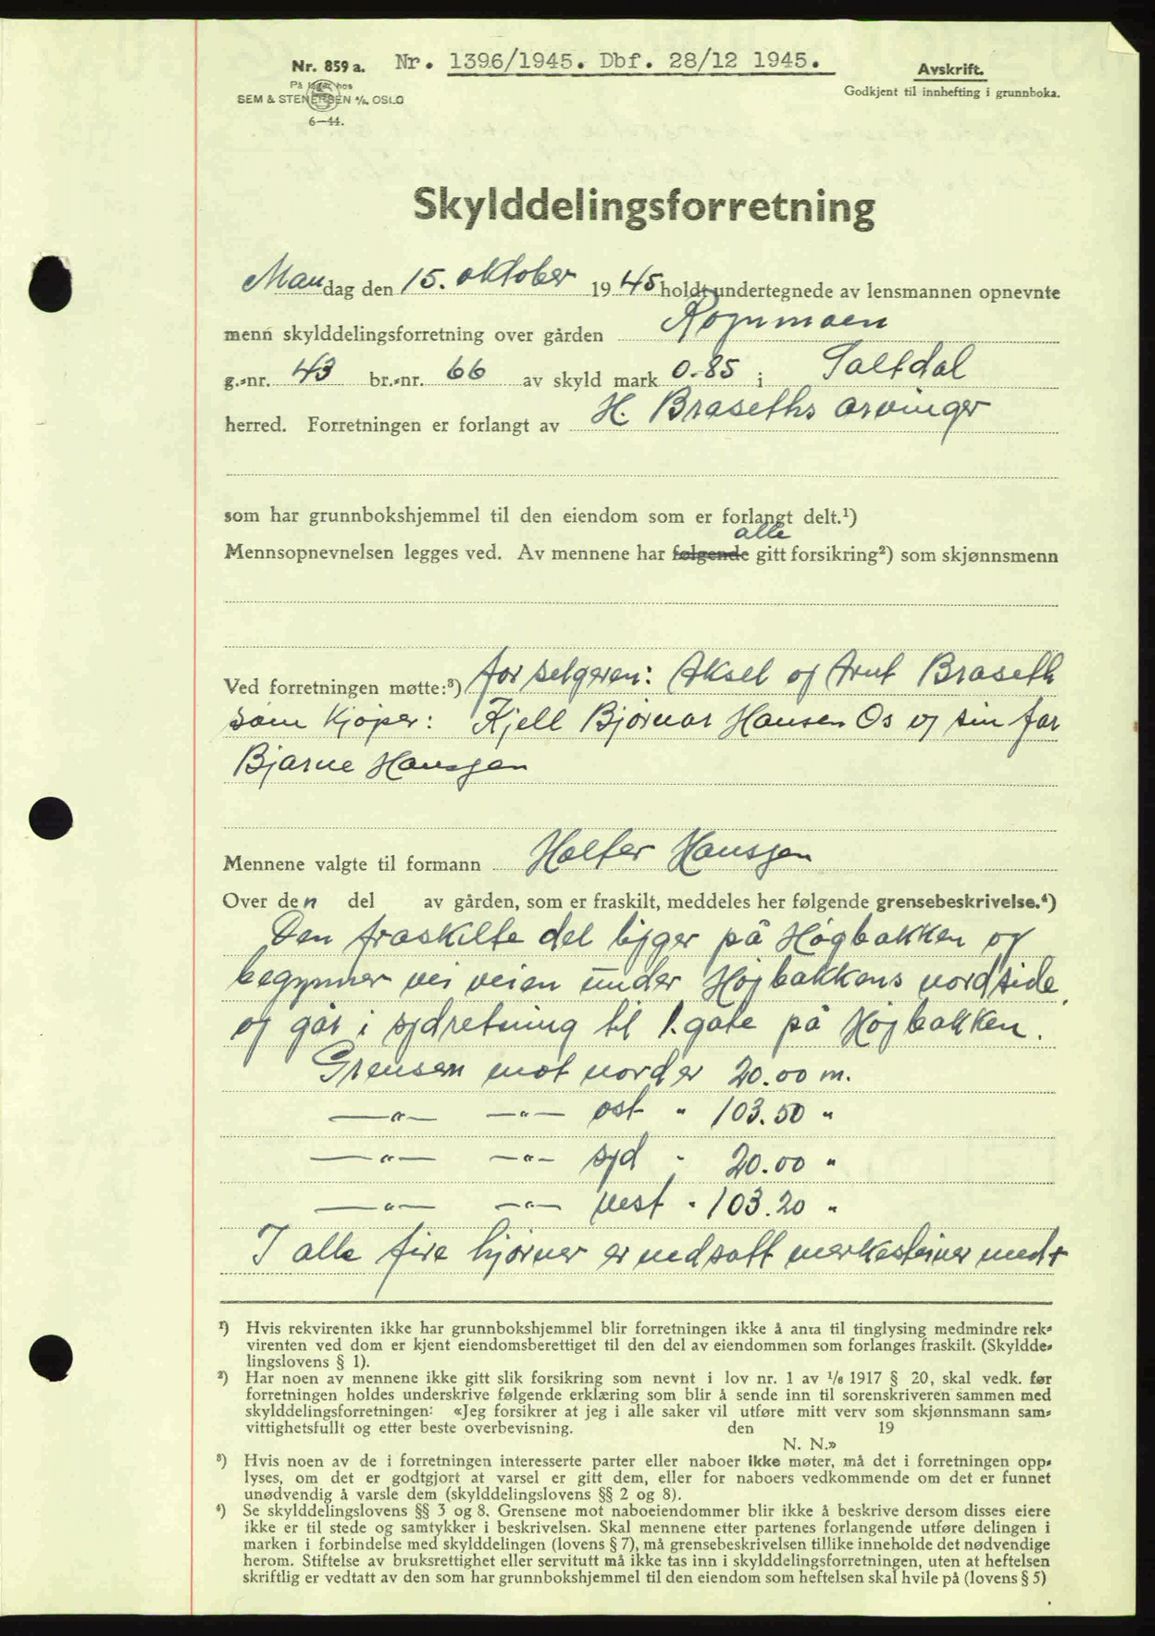 Nr. 859 a. Nr. 1396/1945. Dbf. 28/12 1945. Avskrift.
På lager hos
SEM & STENERSEN A/S. OSLO Godkjent til innhefting i grunnboka.
6—44.
Skylddelingsforretning
Mandag den 15. oktober 1945 holdt undertegnede av lensmannen opnevnte
menn skylddelingsforretning over gården Rognmoen
g.-nr. 43 br.-nr. 66 av skyld mark 0.85 i Saltdal
herred. Forretningen er forlangt av H. Braseths arvinger
som har grunnbokshjemmel til den eiendom som er forlangt delt.¹)
alle
Mennsopnevnelsen legges ved. Av mennene har følgende gitt forsikring²) som skjønnsmenn
Ved forretningen møtte:³) for selgeren: Aksel og Arnt Braseth
som kjøper: Kjell Bjørnar Hansen Os og sin far
Bjarne Hanssen
Mennene valgte til formann Halfer Hanssen
Over den del av gården, som er fraskilt, meddeles her følgende grensebeskrivelse.⁴)
Den fraskilte del ligger på Høgbakken og
begynner vei veien under Høgbakkens nordside
og går i sydretning til 1. gate på Høgbakken.
Grensen mot nord er 20.00 m.
—"— —"— øst " 103.50 "
—"— —"— syd " 20.00 "
—"— —"— vest " 103.20 "
I alle fire hjørner er nedsatt merkesteiner med +
¹) Hvis rekvirenten ikke har grunnbokshjemmel blir forretningen ikke å anta til tinglysing medmindre rek-
virenten ved dom er kjent eiendomsberettiget til den del av eiendommen som forlanges fraskilt. (Skyldde-
lingslovens § 1).
²) Har noen av mennene ikke gitt slik forsikring som nevnt i lov nr. 1 av 1/6 1917 § 20, skal vedk. før
forretningen holdes underskrive følgende erklæring som blir å sende inn til sorenskriveren sammen med
skylddelingsforretningen: «Jeg forsikrer at jeg i alle saker vil utføre mitt verv som skjønnsmann sam-
vittighetsfullt og etter beste overbevisning. den 19
N. N.»
³) Hvis noen av de i forretningen interesserte parter eller naboer ikke møter, må det i forretningen opp-
lyses, om det er godtgjort at varsel er gitt dem, eller for naboers vedkommende om det er funnet
unødvendig å varsle dem (skylddelingslovens §§ 2 og 8).
⁴) Se skylddelingslovens §§ 3 og 8. Grensene mot naboeiendommer blir ikke å beskrive dersom disses eiere
ikke er til stede og samtykker i beskrivelsen. Skal mennene etter partenes forlangende utføre delingen i
marken i forbindelse med skylddelingen (lovens § 7), må grensebeskrivelsen tillike inneholde det nødvendige
herom. Stiftelse av bruksrettighet eller servitutt må ikke tas inn i skylddelingsforretningen, uten at heftelsen
skriftlig er vedtatt av den som har grunnbokshjemmel til den eiendom som heftelsen skal hvile på (lovens § 5)